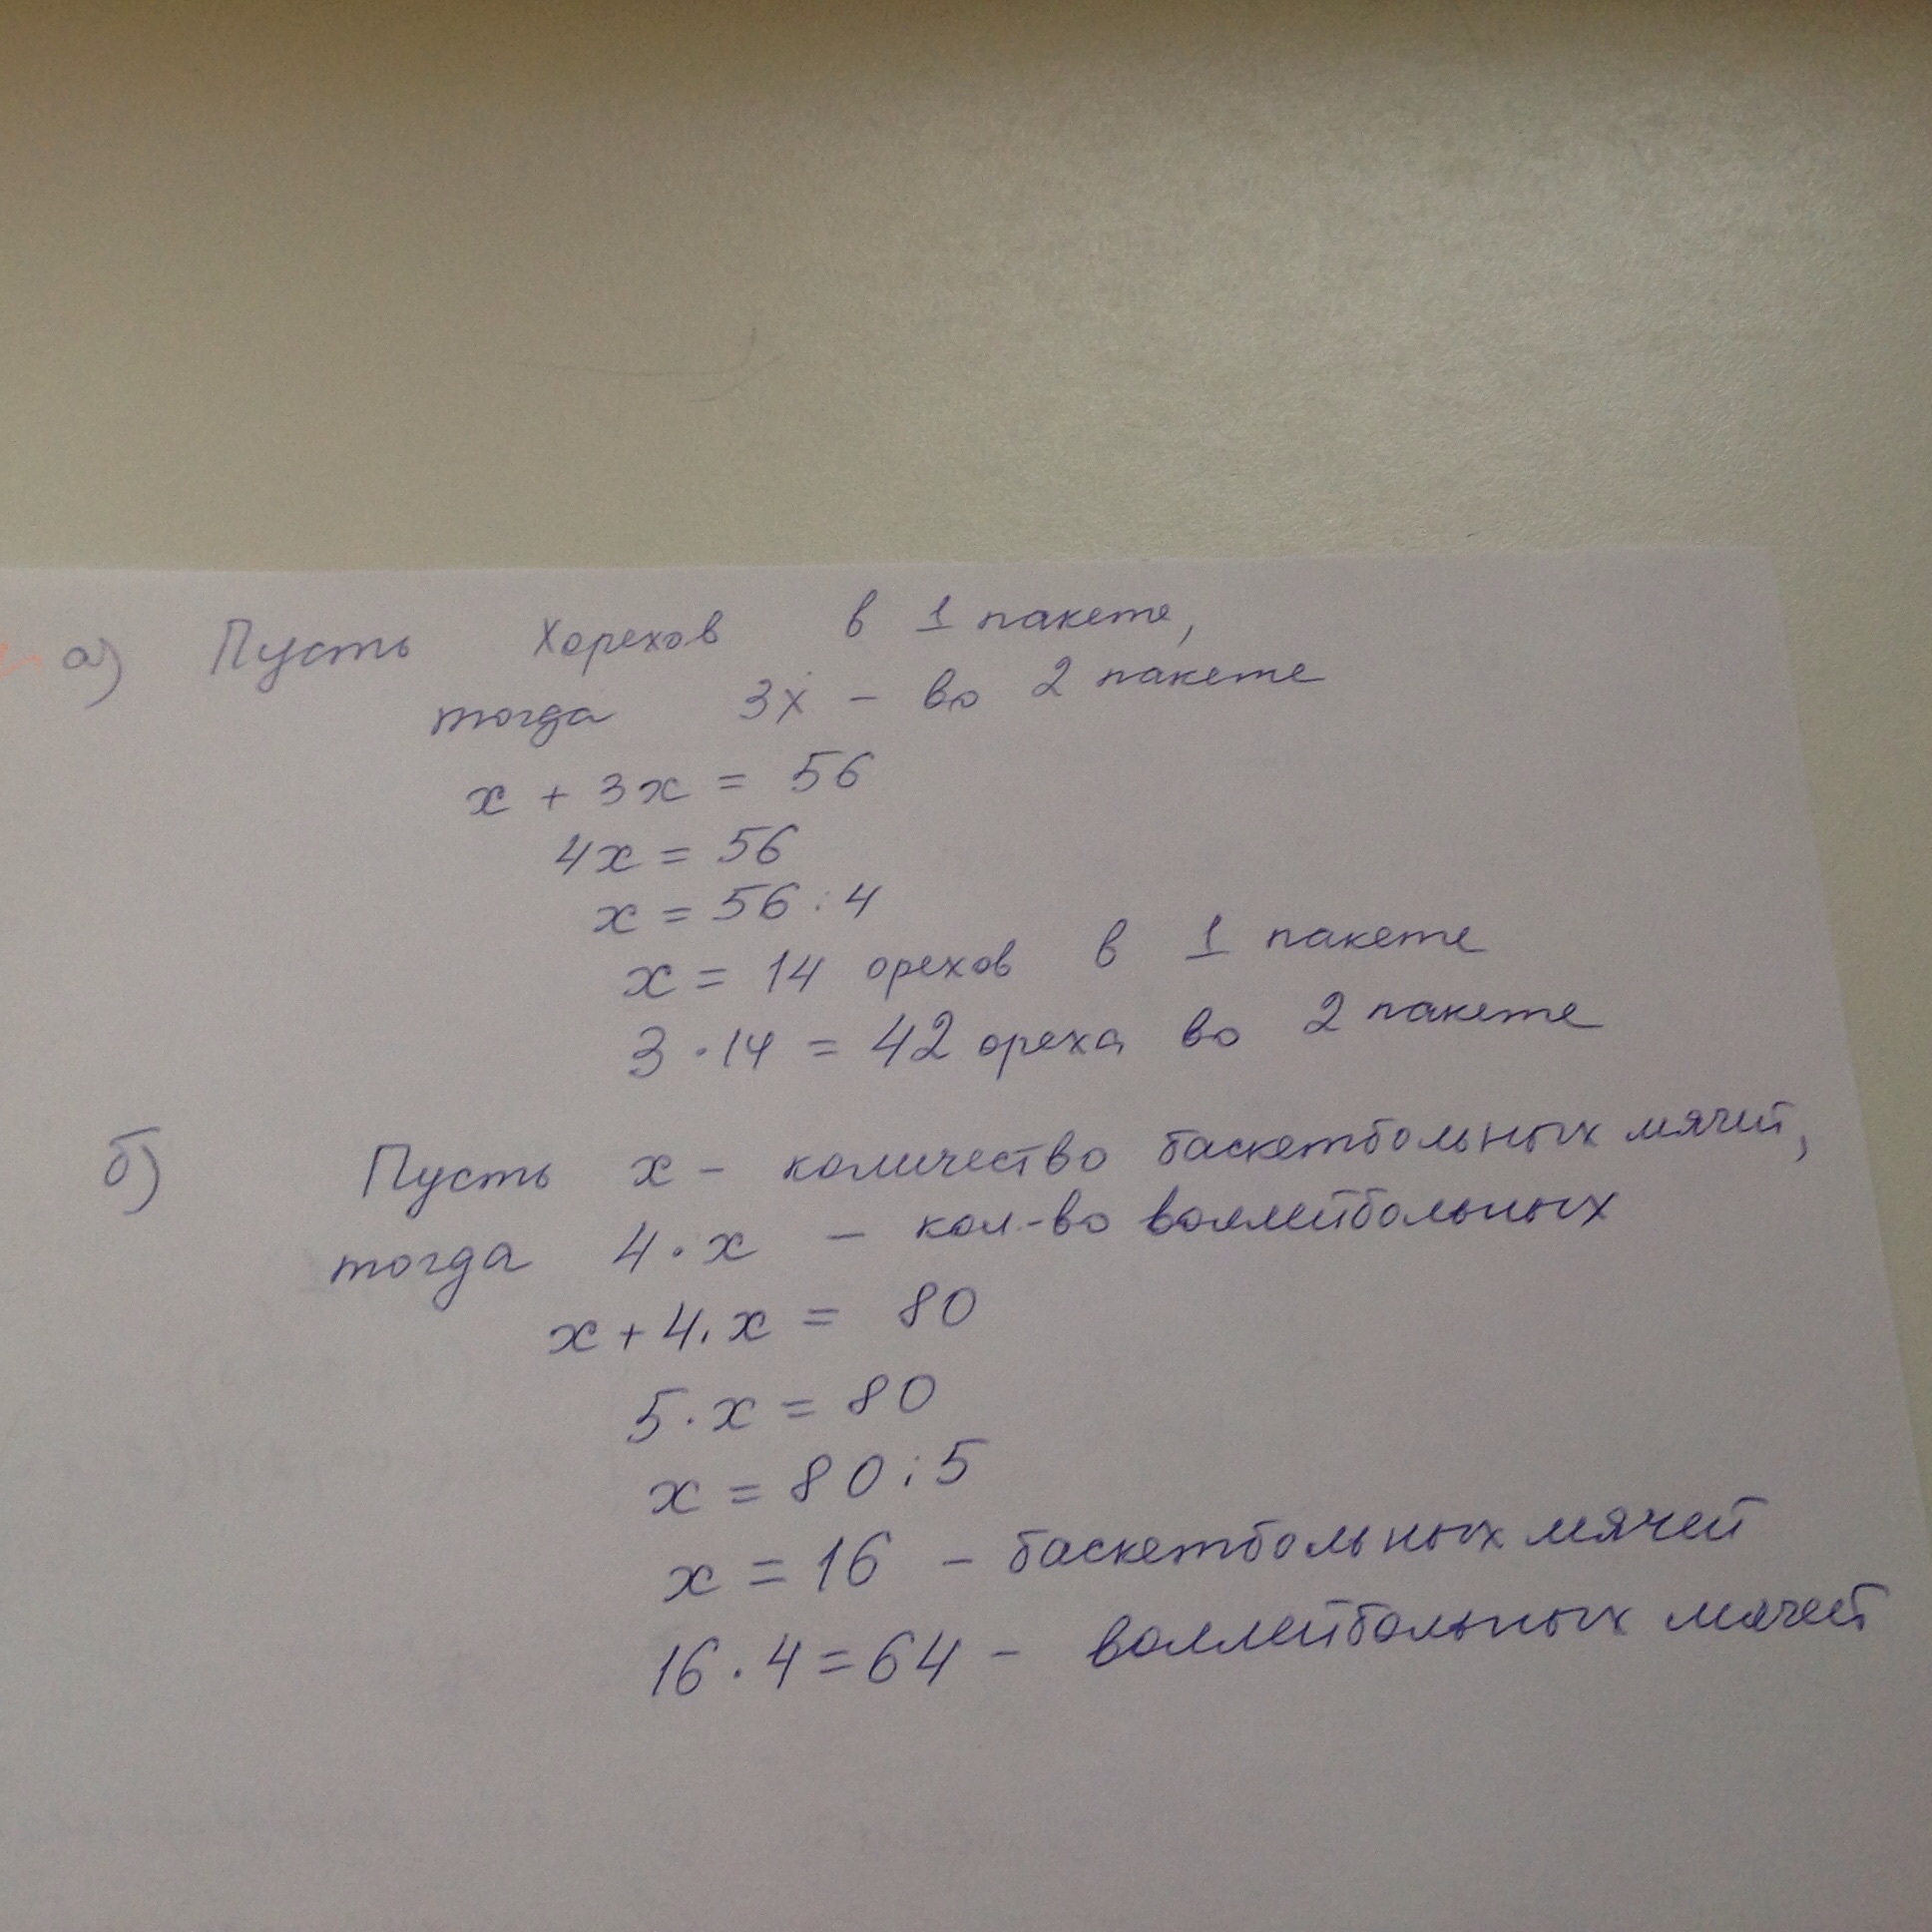 а) Пусть x орехов в 1 пакете,
тогда 3x – во 2 пакете
x + 3x = 56
4x = 56
x = 56 : 4
x = 14 орехов в 1 пакете
3 · 14 = 42 ореха во 2 пакете
б) Пусть x – количество баскетбольных мячей,
тогда 4 · x – кол-во воллейбольных
x + 4 · x = 80
5 · x = 80
x = 80 : 5
x = 16 – баскетбольных мячей
16 · 4 = 64 – воллейбольных мячей